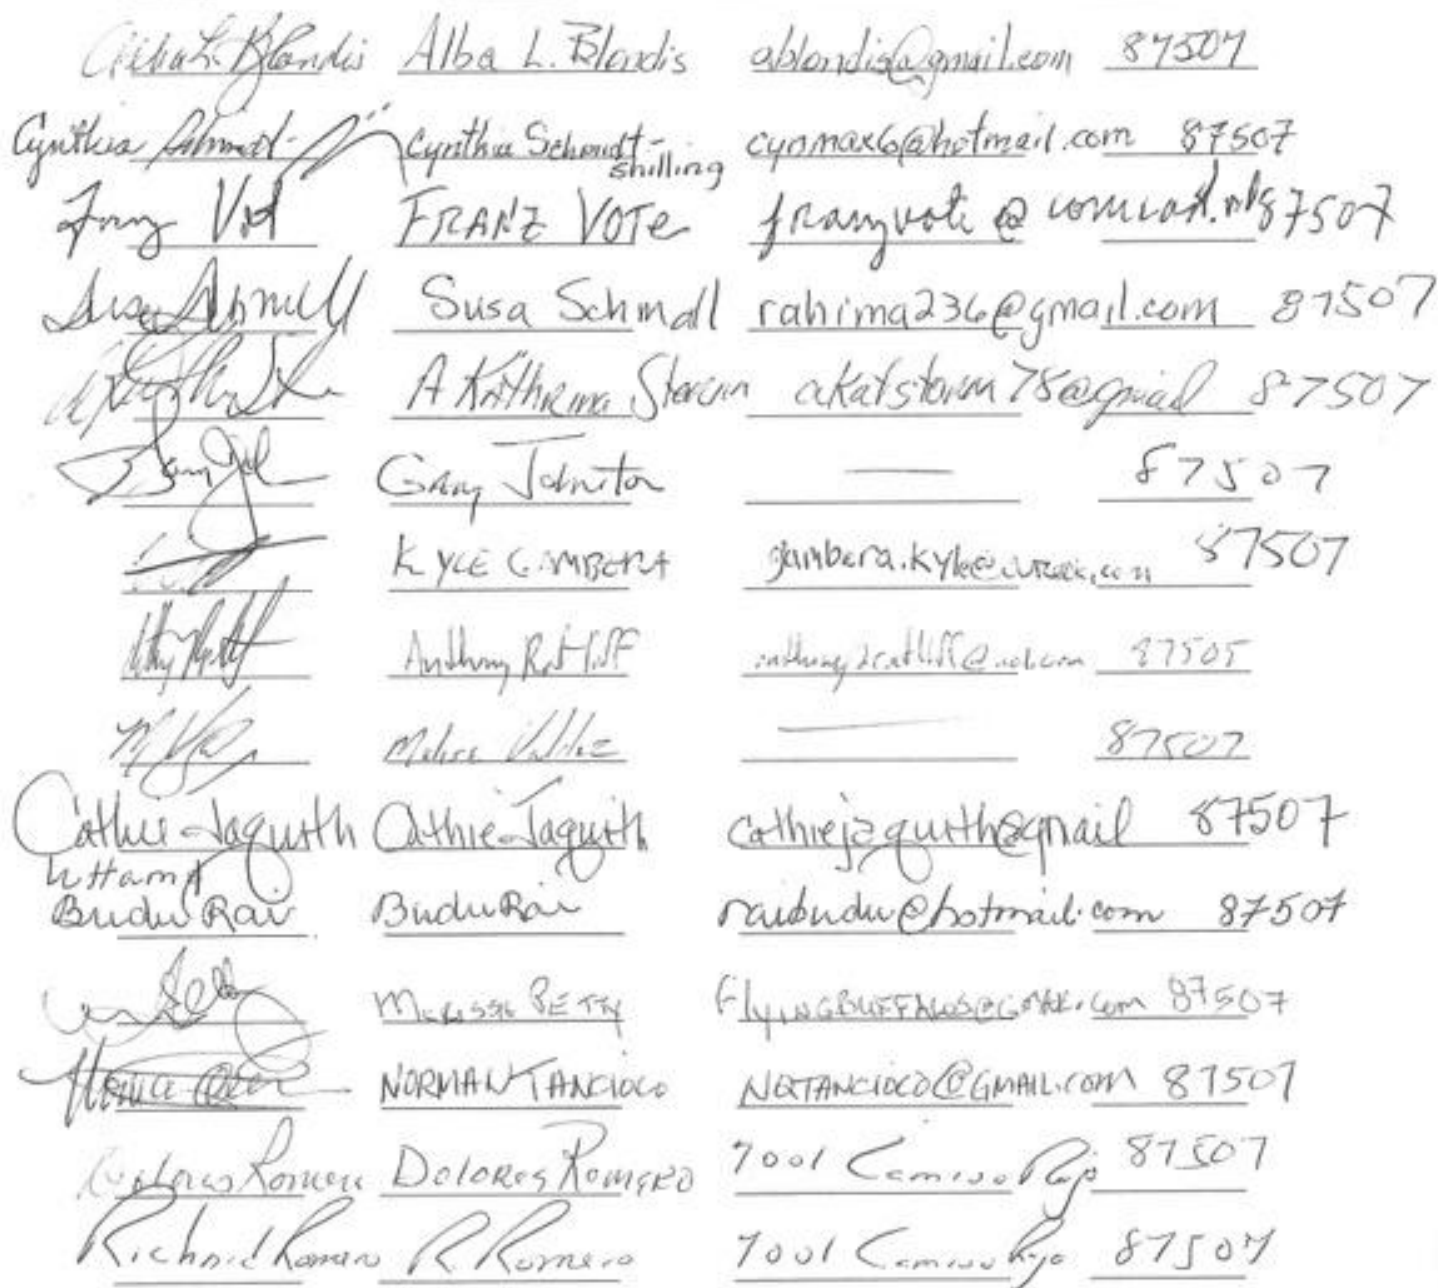 Alba L. Blondis Alba L. Blondis ablondis@gmail.com 87507
Cynthia Schmidt- Cynthia Schmidt-shilling cynmax6@hotmail.com 87507
Franz Vote FRANZ VOTe franzvote@comcast.net 87507
Susa Schmall Susa Schmall rahima236@gmail.com 87507
A Katherina akatstorm78@gmail 87507
Gary Johnston — 87507
KYLE GAMBERA gambera.kyle@outlook.com 87507
Anthony Ratliff 87505
— 87507
Cathie Jaquith Cathie Jaquith cathiejaquith@gmail 87507
Uttam
Budu Rai Budu Rai raibudu@hotmail.com 87507
PETTY FlyingBuffalos@Gmail.com 87507
NORMAN TANCIOCO NQTANCIOCO@GMAIL.COM 87507
Dolores Romero DOLORES ROMERO 7001 Camino Rojo 87507
Richard Romero R Romero 7001 Camino Rojo 87507